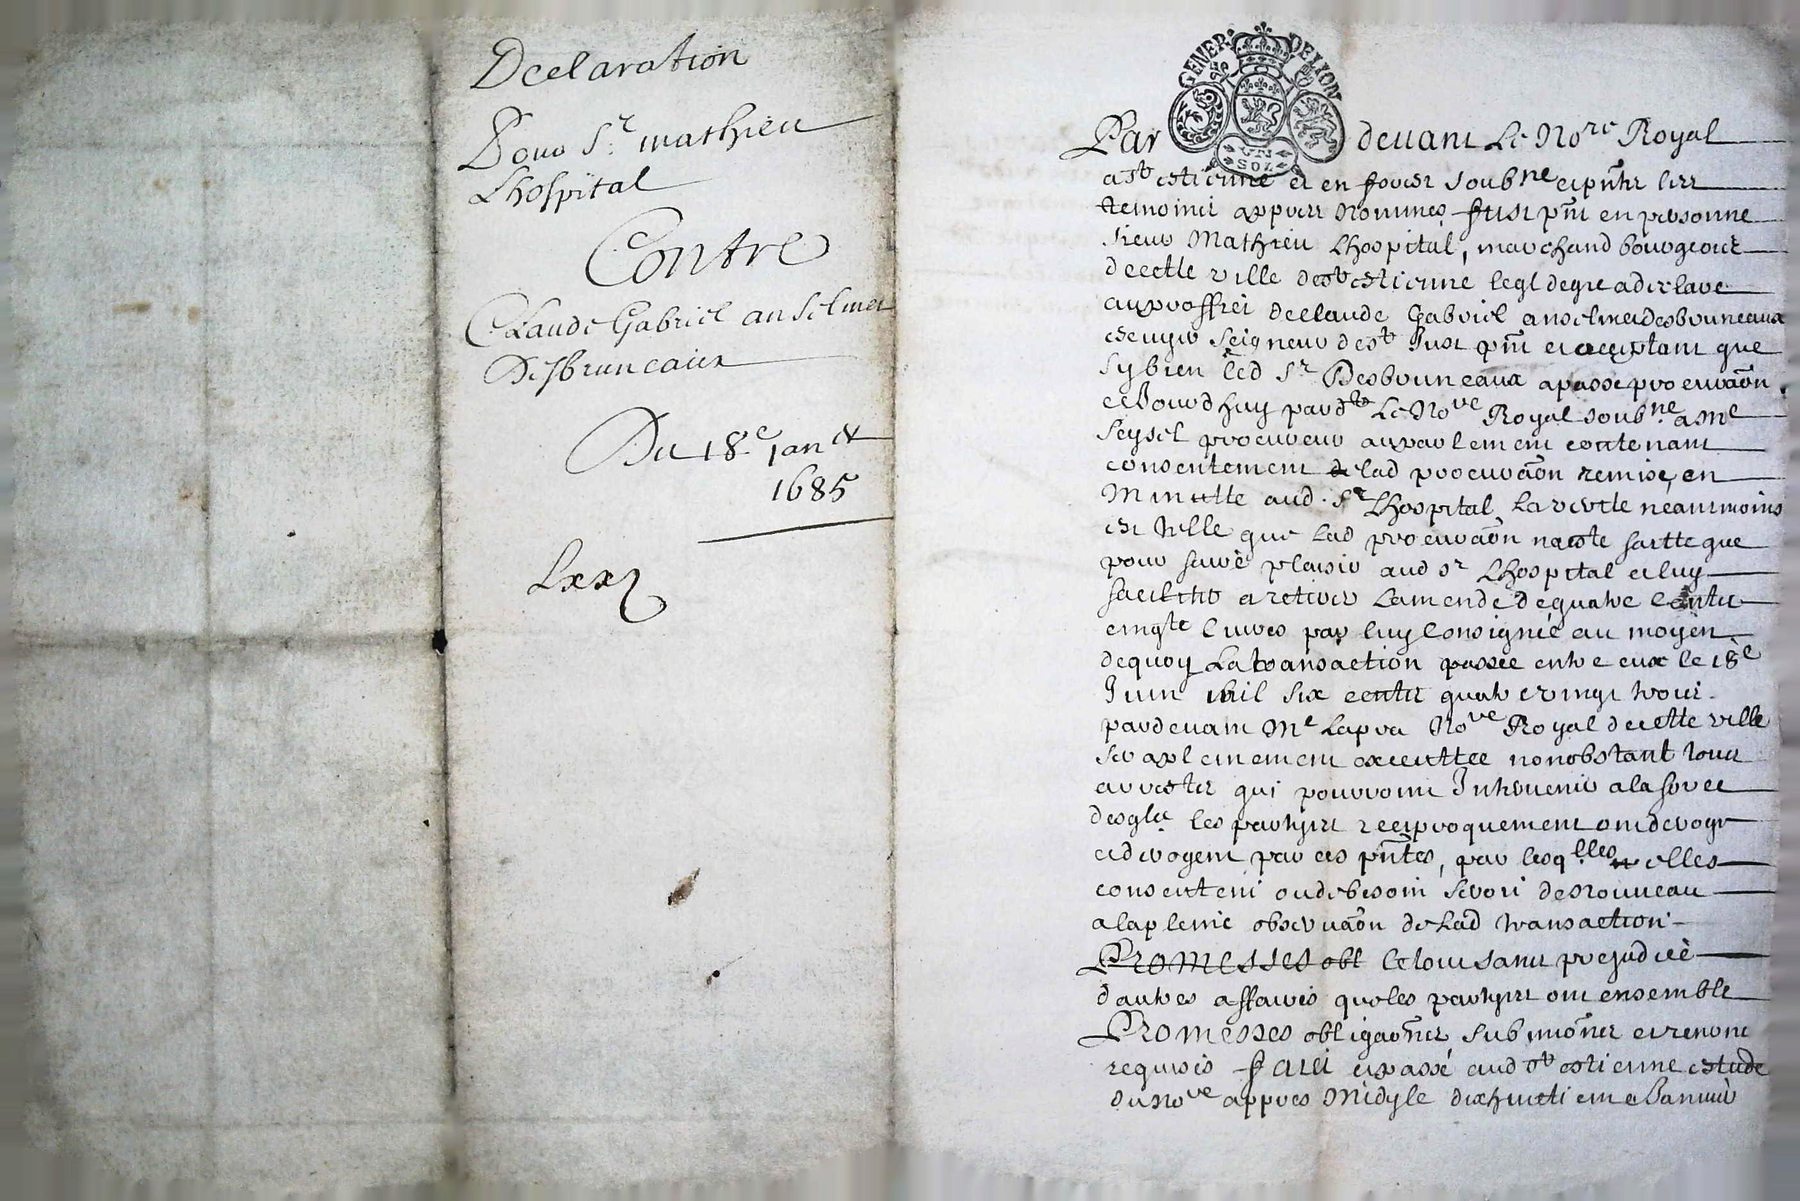 Declaration
Pour Sr. mathieu
Lhospital
Contre
Claude Gabriel anselmet
Desbruneaux
Du 18e Janer
1685
Lxx
GENER. DE LION
UN
SOL
Par devant Le Nore Royal
a St estienne et en forest soubne et pnts les
temoines appres nommes fust pnt en personne
sieur Mathieu Lhospital, marchand bourgeois
de cette ville de st estienne leql de gre a declare
au proffict de claude Gabriel anselme desbruneaux
escuyer seigneur de st Just pnt et acceptant que
sy bien led Sr Desbruneaux a passe procuraon
ce Jourdhuy par dt Le Nore Royal soubne a Me
Seysel procureur au parlement contenant
consentement de lad procuraon remise, en
Minutte aud. Sr Lhospital, La verite neantmoins
est telle que Lad procuraon na este faitte que
pour faire plaisir aud sr Lhospital et luy
faciliter a retirer Lamende de quatre cents
cinqte livres par luy Consignée au moyen
de quoy La transaction passée entre eux le 18e
Juin mil six cents quatre vingt trois
pardevant Me Lapra Nore Royal de cette ville
sera plainement executtée nonobstant tous
arrestz qui pourroint Intervenir a la force
desqls les partyes reciproquement ont deroge
et derogent par ces pntes, par lesqlles elles
consentent ou de besoin seroit de nouveau
a la pleine observaon de Lad transaction
Promesses obl Le tout sans prejudice
dautres affaires que les partyes ont ensemble
Promesses obligaones submiones et renonc
requises fait et passé aud st estienne estude
du nore appres Midy le dixhuictieme Janvier